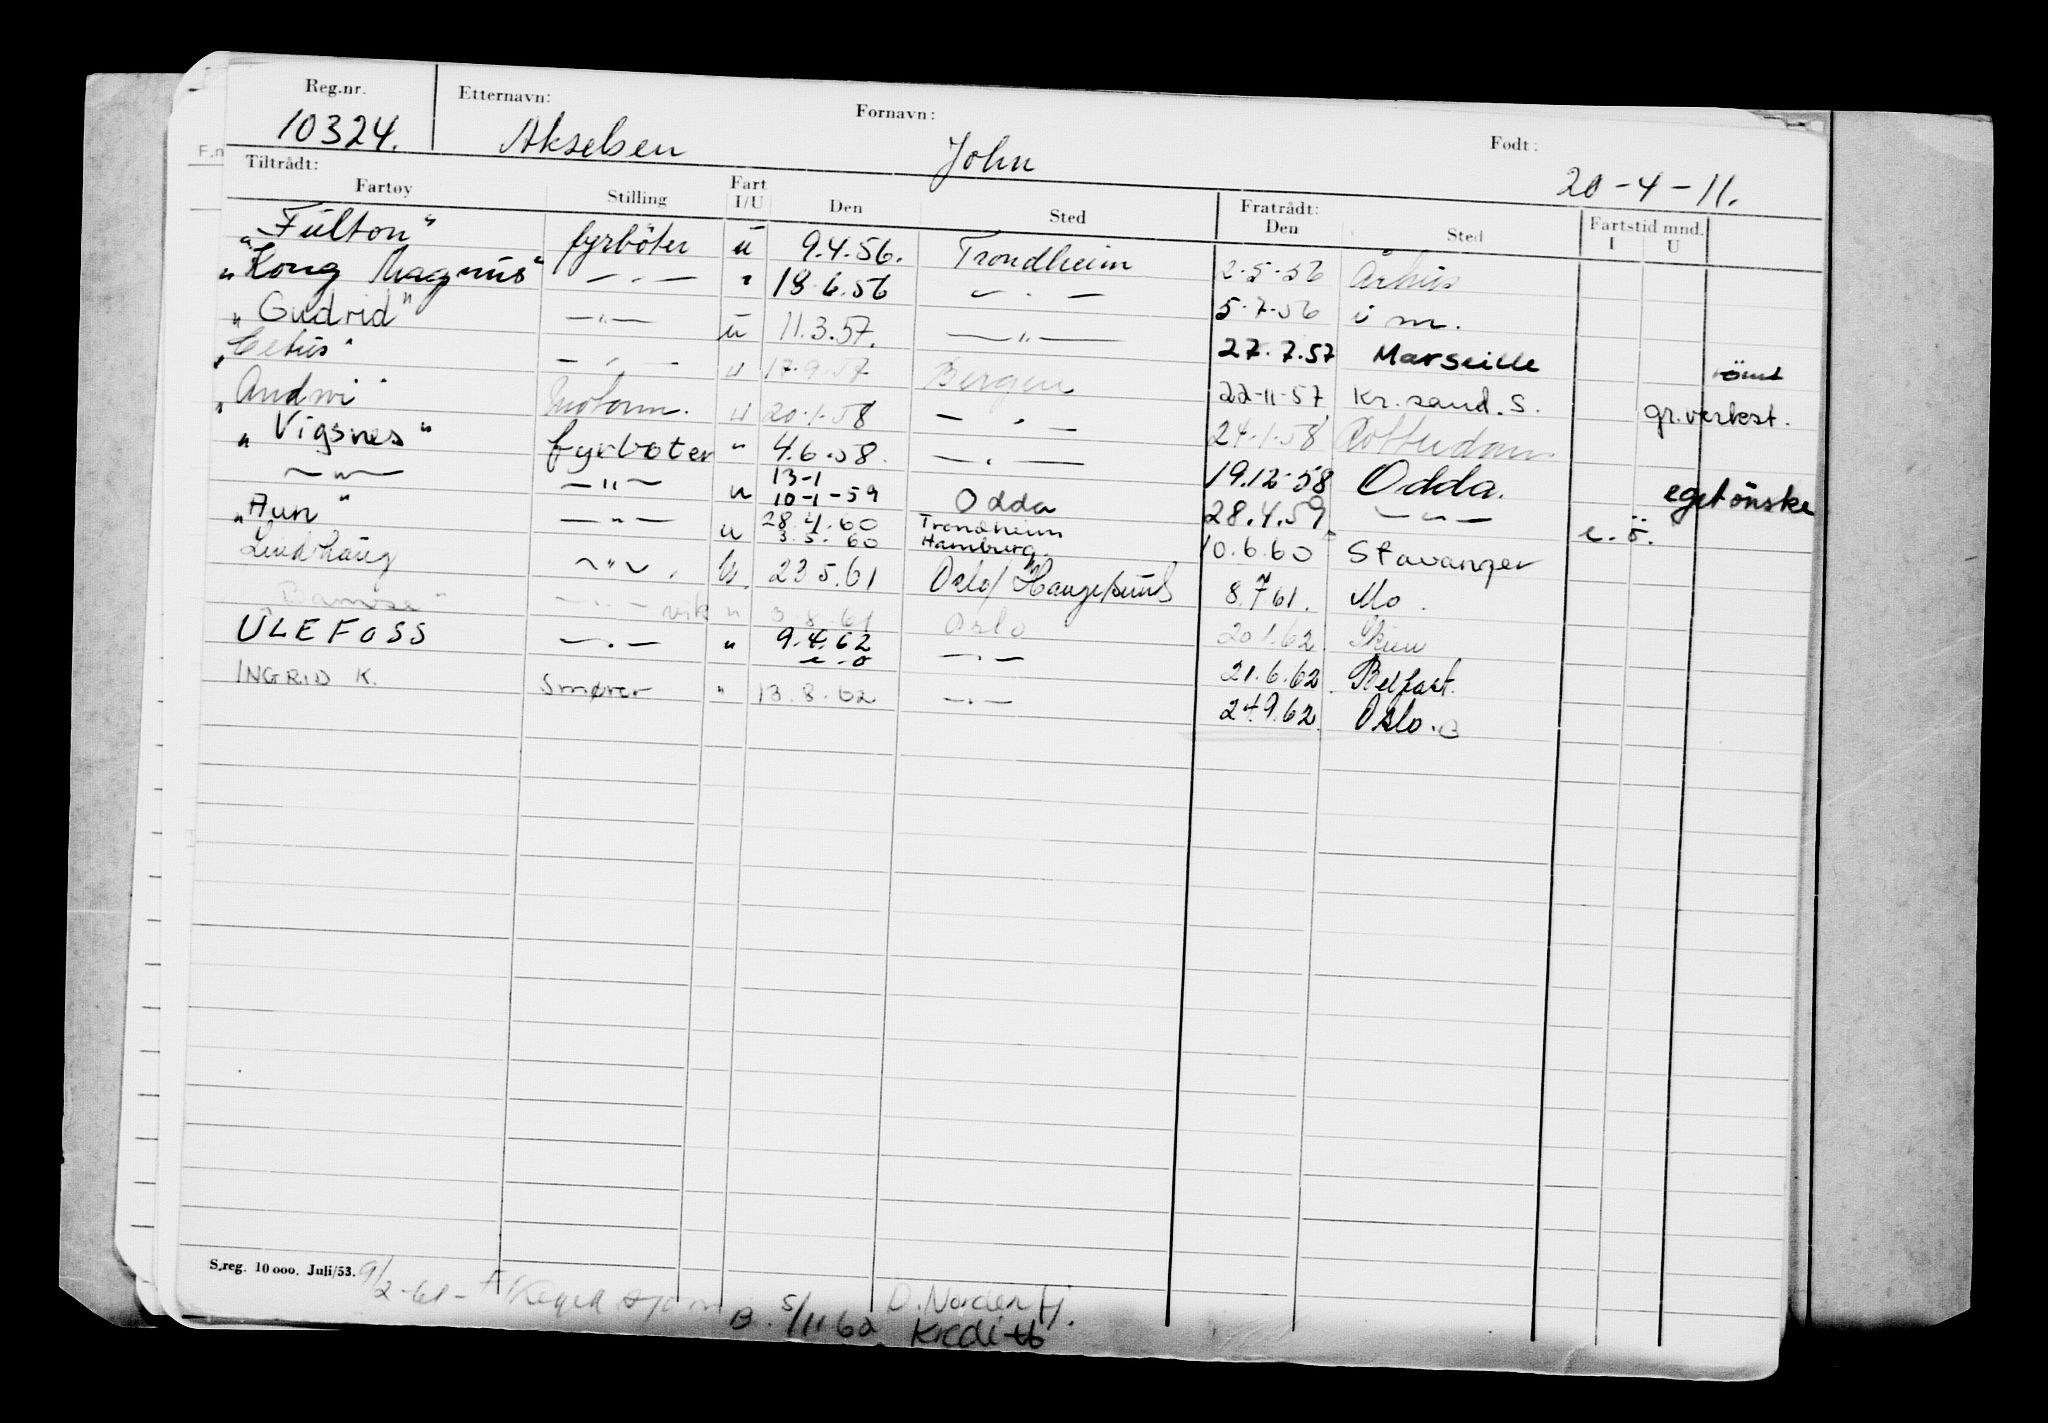 Reg.nr. Etternavn: Fornavn: Født:
10324. Akselsen John 20-4-11.
Tiltrådt: Fratrådt: Fartstid mnd.
Fartøy Stilling Fart I/U Den Sted Den Sted I U
"Fulton" fyrböter u 9.4.56. Trondheim 2-5-56 Århus
"Kong Magnus" — " — " 18.6.56 — " — 5.7.56 i m.
"Gudrid" — " — u 11.3.57. — " — 27.7.57 Marseille römt
"Cetus" — " — u 17.9.57 Bergen 22-11-57 Kr.sand.S. gr.verkst.
"Andwi" Motorm. u 20.1.58 — " — 24.1.58 Rotterdam
"Vigsnes" fyrboter " 4.6.58. — " — 19.12-58 Odda. eget önske
— " — — " — u 13-1 10-1-59 Odda 28.4.59 — " — e.ö.
"Aun" — " — u 28.4.60 3.5.60 Trondheim Hamburg. 10.6.60 Stavanger
Lindhaug — " — 23 5.61 Oslo/Haugesund 8.7 61. Mo.
— " — vik " 3.8.61 Oslo 20.1.62 Skien
ULEFOSS — " — " 9.4.62 — " — 21.6.62 Belfast.
e.o
INGRID K. Smører " 13.8.62 — " — 24.9.62 Oslo.B
S.reg. 10 000. Juli/53.
9/2-61-
B. 5/11 62 D. Nordenfj.
Kreditb